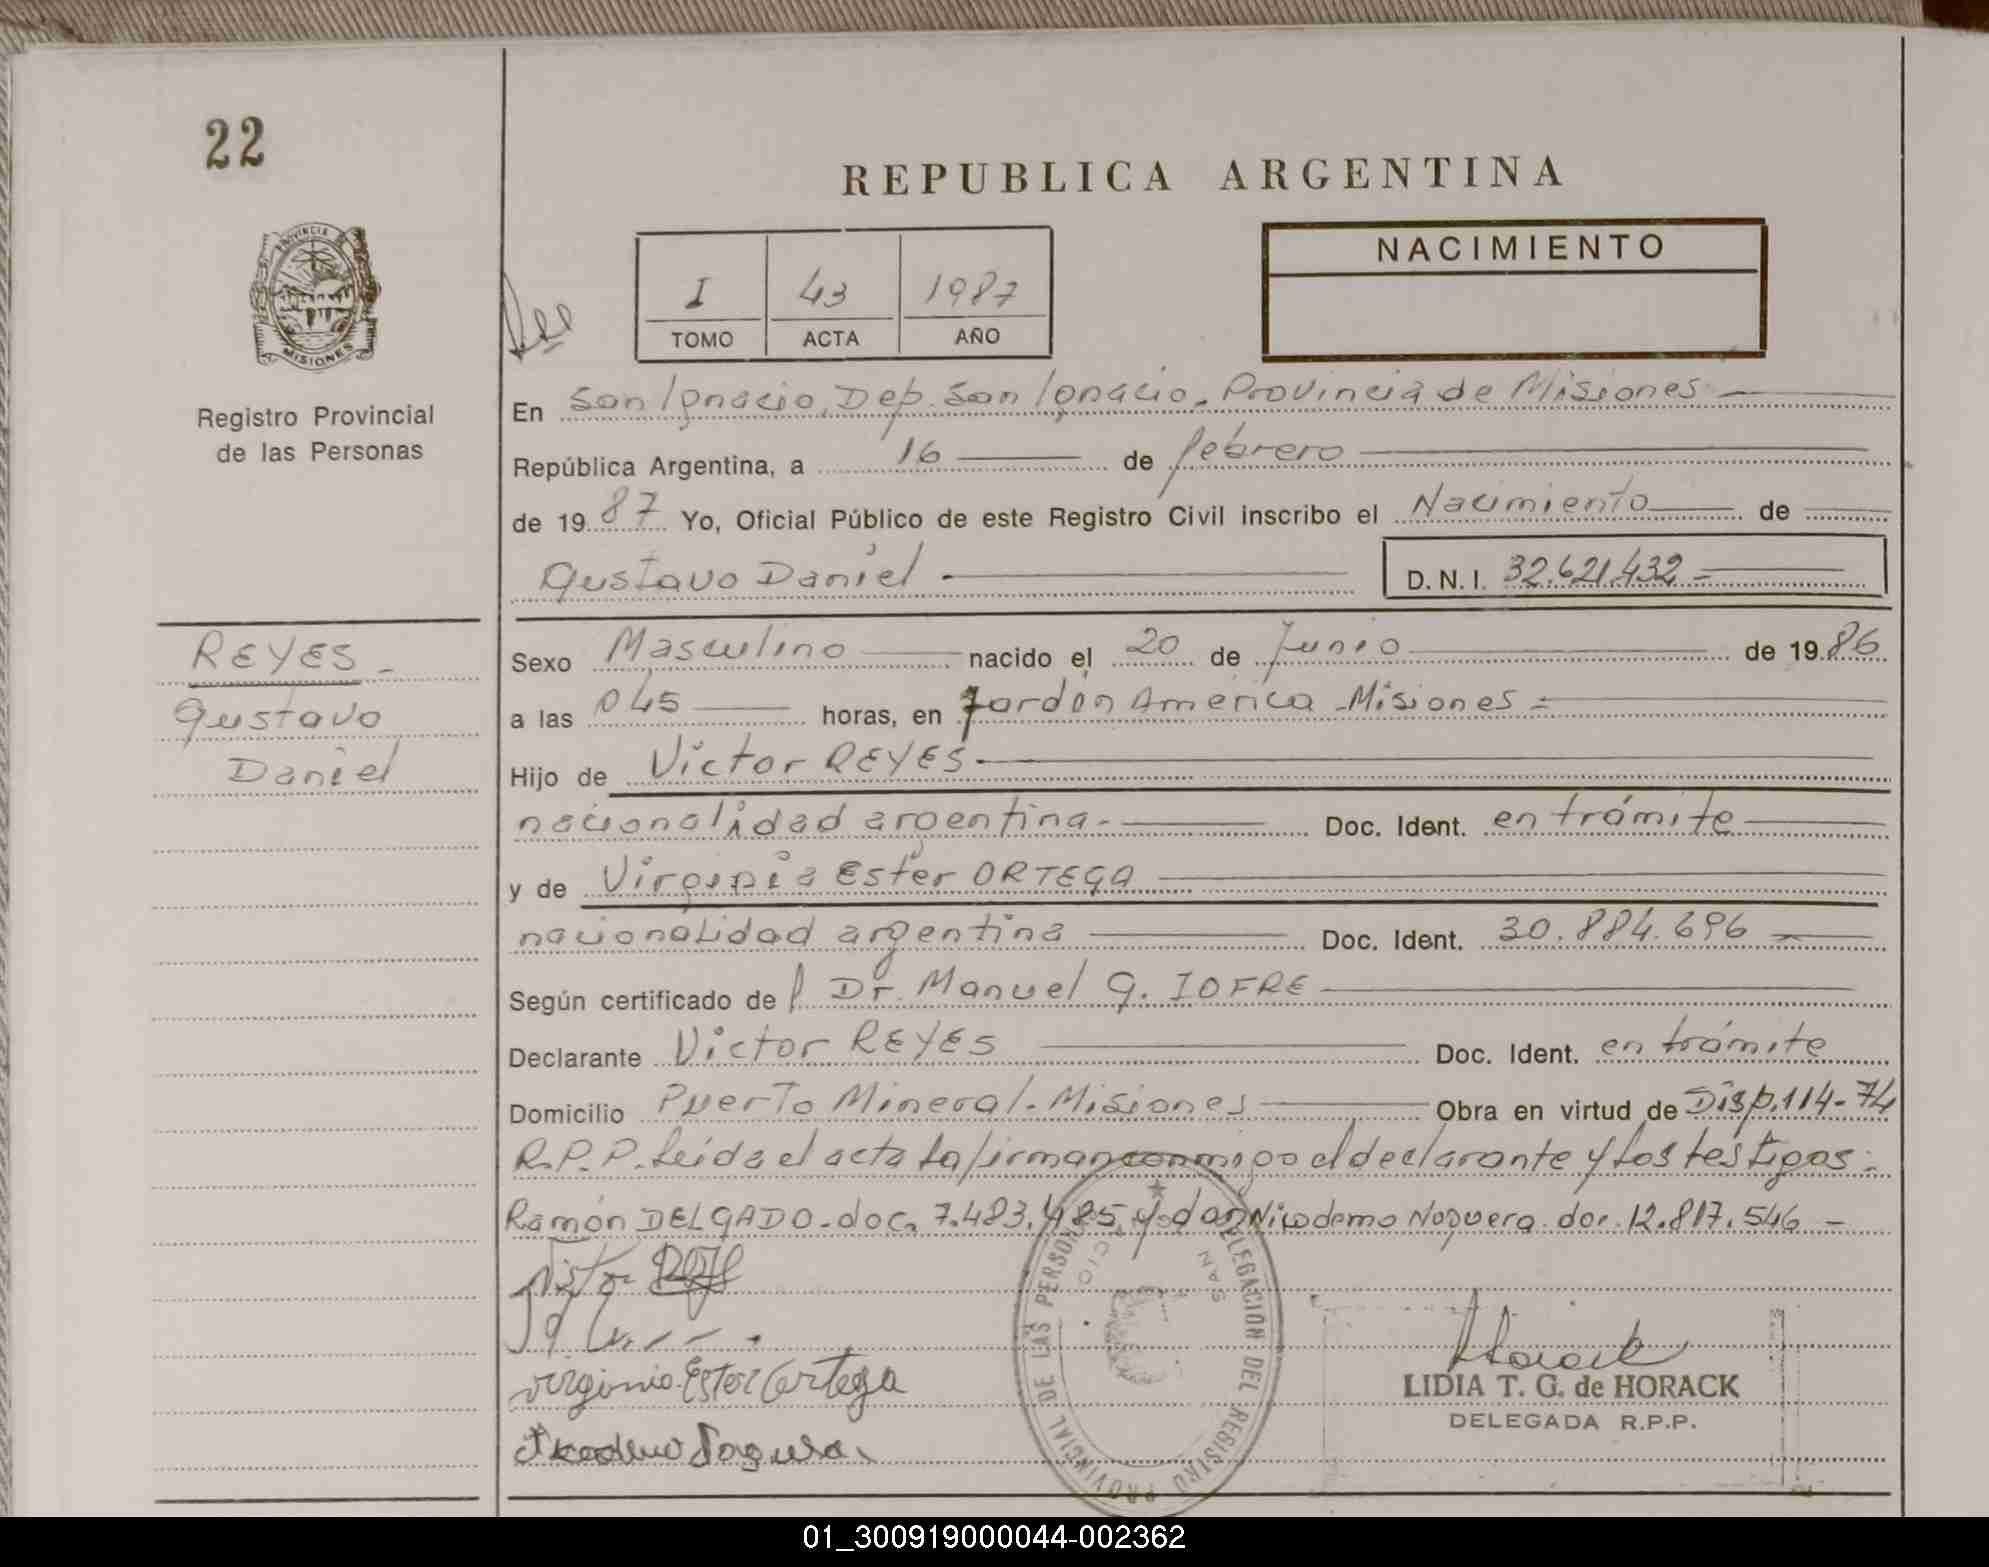 22
REPUBLICA ARGENTINA
PROVINCIA DE MISIONES
Registro Provincial
de las Personas
I 43 1987
TOMO ACTA AÑO
NACIMIENTO
En San Ignacio, Dep. San Ignacio. Provincia de Misiones
República Argentina, a 16 de febrero
de 1987 Yo, Oficial Público de este Registro Civil inscribo el Nacimiento de
Gustavo Daniel D.N.I. 32.621.432
REYES
Gustavo
Daniel
Sexo Masculino nacido el 20 de Junio de 1986
a las 045 horas, en Jardín America - Misiones
Hijo de Victor REYES
nacionalidad argentina Doc. Ident. en trámite
y de Virginia Ester ORTEGA
nacionalidad argentina Doc. Ident. 30.884.696
Según certificado de Dr. Manuel G. IOFRE
Declarante Victor REYES Doc. Ident. en trámite
Domicilio Puerto Mineral - Misiones Obra en virtud de Disp. 114-74
R.P.P. Leída el acta la firman conmigo el declarante y los testigos:
Ramón DELGADO - doc. 7.483.485 y don Nicodemo Noguera doc. 12.817.546
Virginia Ester Ortega
DELEGACION DEL REGISTRO PROVINCIAL DE LAS PERSONAS
SAN IGNACIO
Horack
LIDIA T. G. de HORACK
DELEGADA R.P.P.
01_300919000044-002362